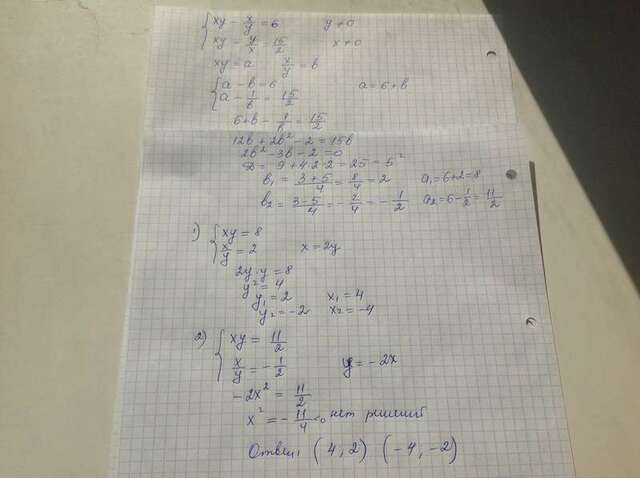 { xy - x/y = 6    y ≠ 0
xy - y/x = 15/2    x ≠ 0
xy = a    x/y = b
{ a - b = 6    a = 6 + b
a - 1/b = 15/2
6 + b - 1/b = 15/2
12b + 2b² - 2 = 15b
2b² - 3b - 2 = 0
D = 9 + 4·2·2 = 25 = 5²
b₁ = (3+5)/4 = 8/4 = 2    a₁ = 6 + 2 = 8
b₂ = (3-5)/4 = -2/4 = -1/2    a₂ = 6 - 1/2 = 11/2
1) { xy = 8
x/y = 2    x = 2y
2y·y = 8
y² = 4
y₁ = 2    x₁ = 4
y₂ = -2    x₂ = -4
2) { xy = 11/2
x/y = -1/2    y = -2x
-2x² = 11/2
x² = -11/4 <0 нет решений
Ответ: (4, 2) (-4, -2)